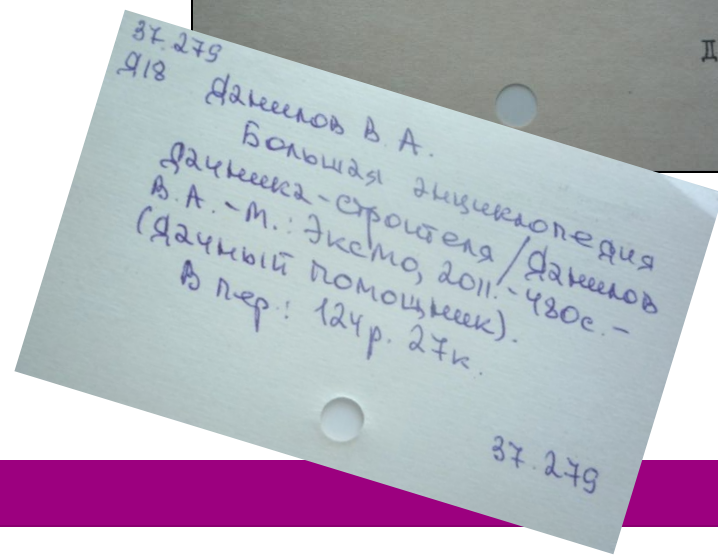 Д
37.279
Д18
Данилов В. А.
Большая энциклопедия
дачника-строителя / Данилов
В. А. - М.: Эксмо, 2011. - 480с. -
(Дачный помощник).
В пер.: 124р. 27к.
37.279